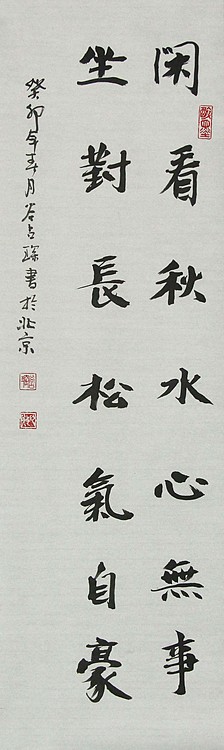 閑看秋水心無事
坐對長松氣自豪
癸卯年春月谷占瑞書於北京